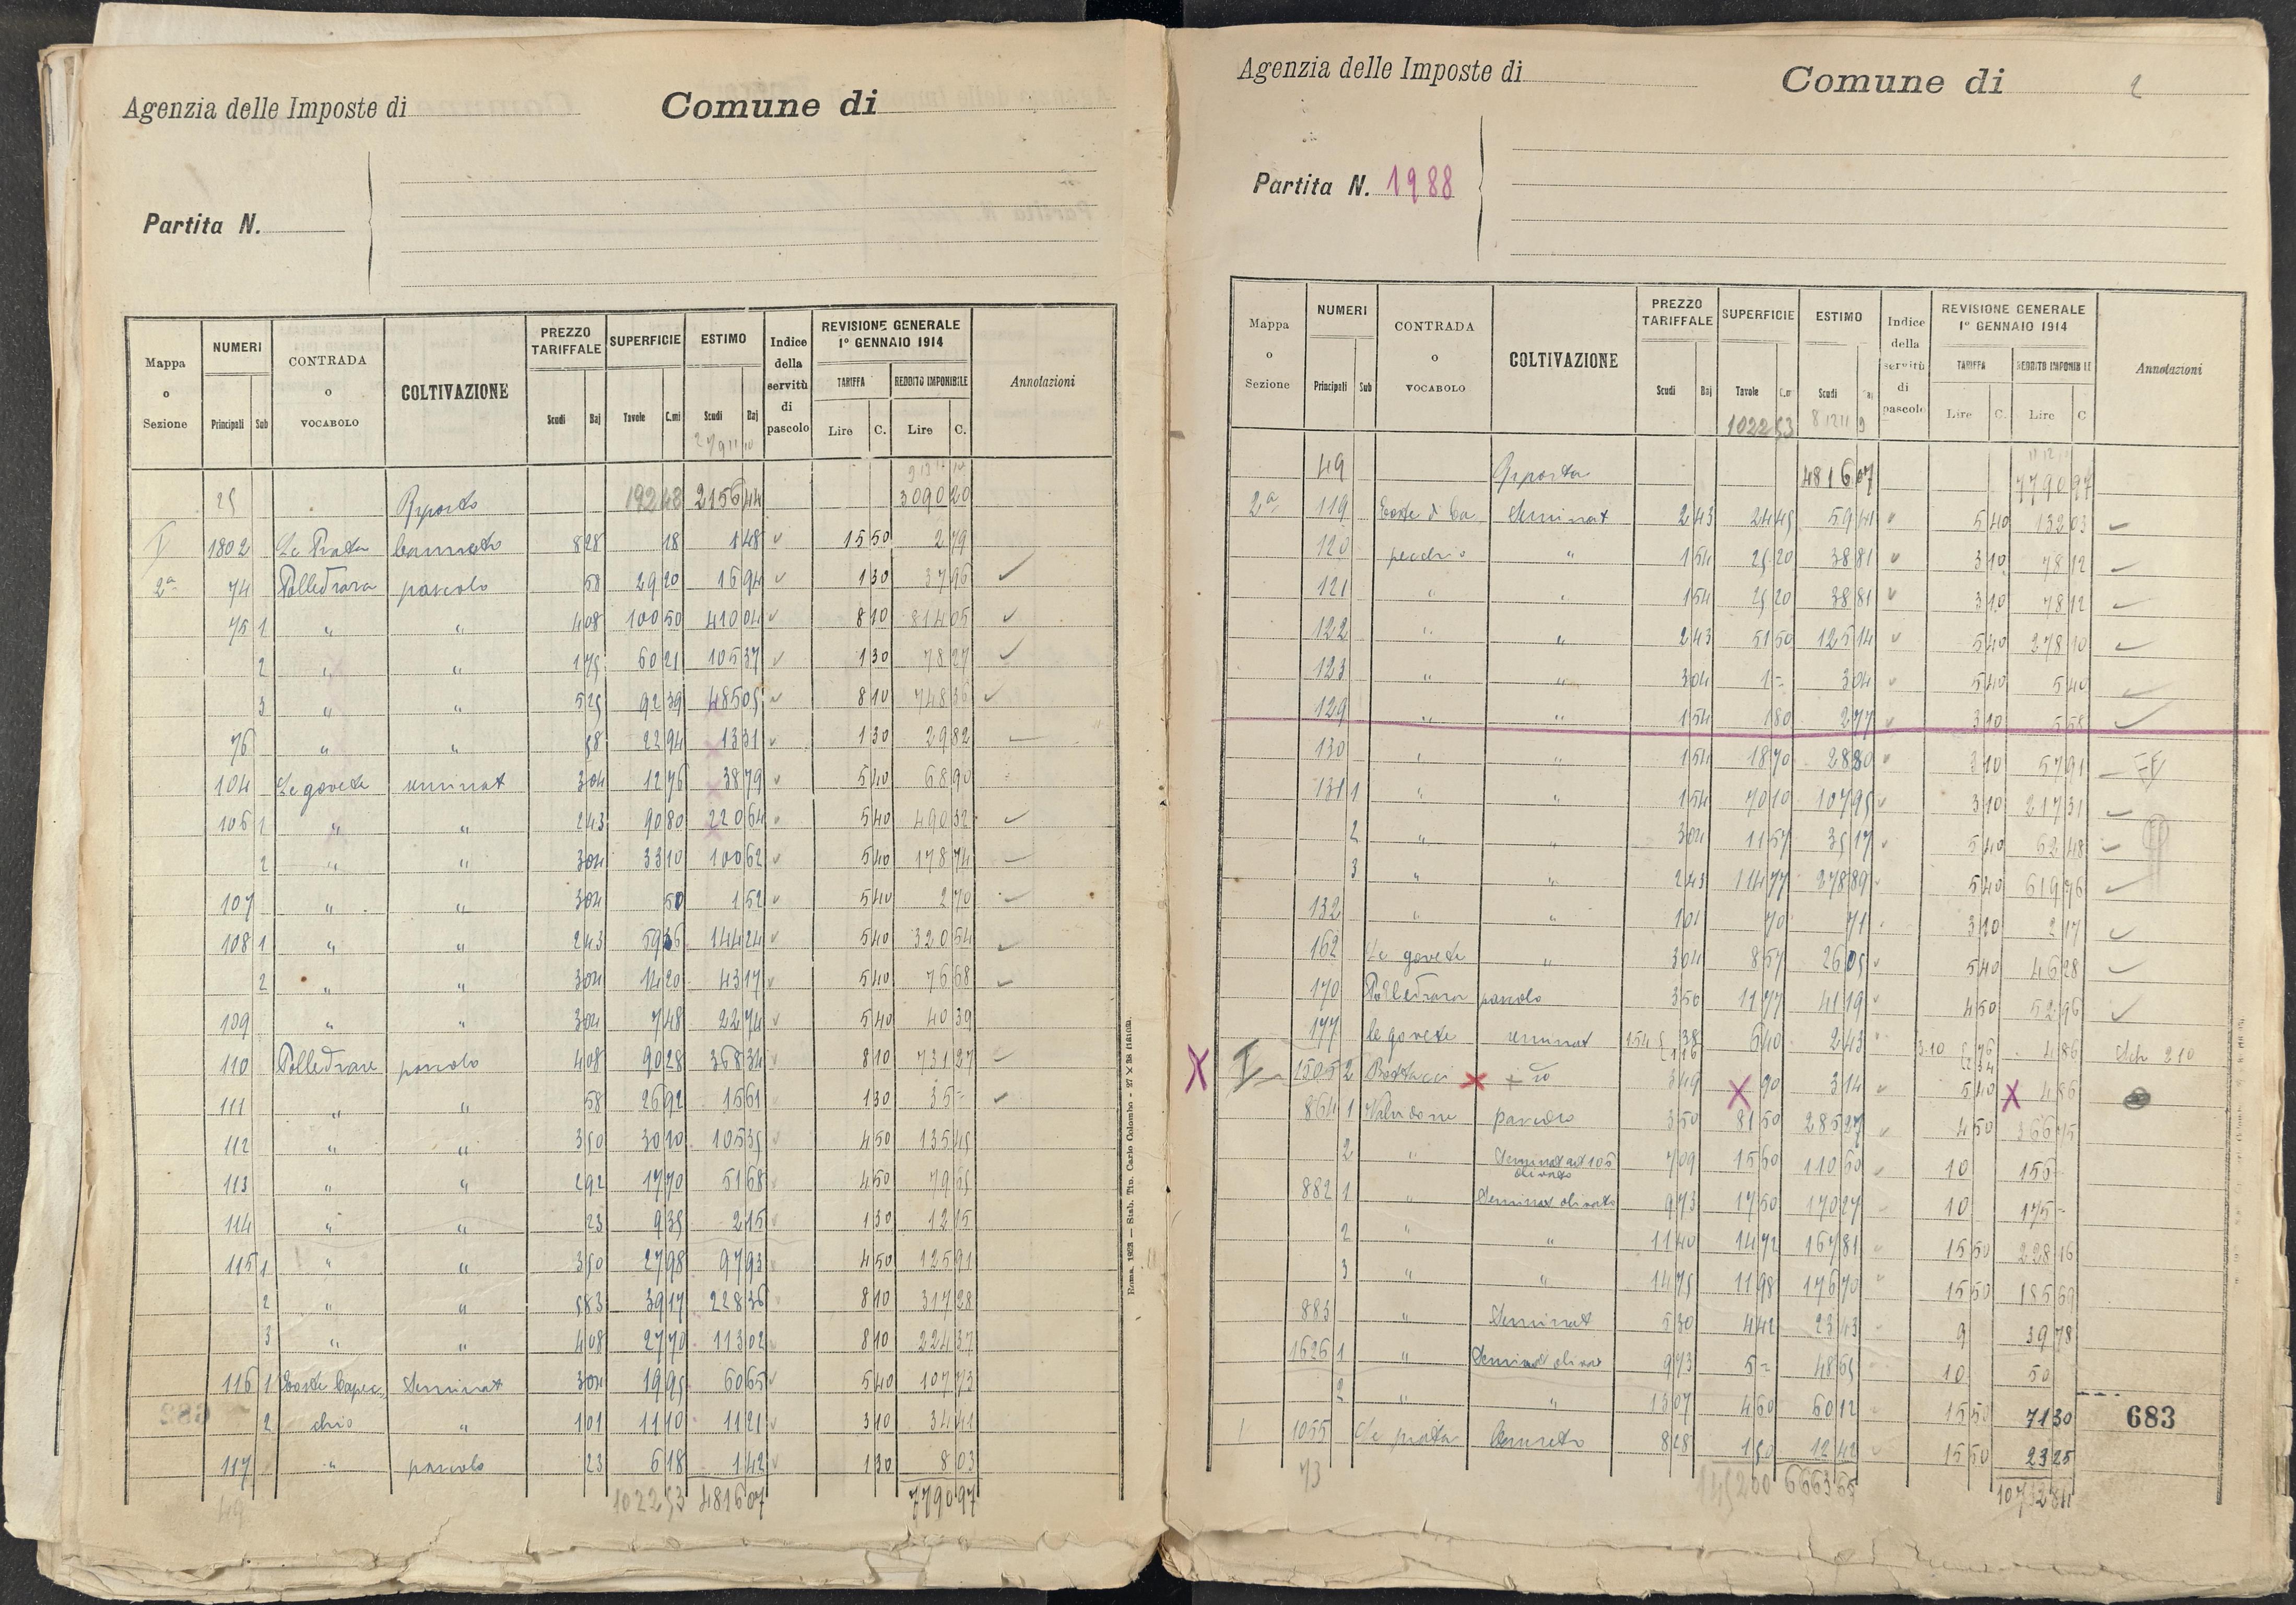 Agenzia delle Imposte di Comune di
Partita N.
Mappa o Sezione NUMERI CONTRADA o VOCABOLO COLTIVAZIONE PREZZO TARIFFALE SUPERFICIE ESTIMO Indice della servitù di pascolo REVISIONE GENERALE 1° GENNAIO 1914 Annotazioni
TARIFFA REDDITO IMPONIBILE
Principali Sub Scudi Baj Tavole C.mi Scudi Baj Lire C. Lire C.
25 Riporto 192 48 2156 44 3090 20
I 1802 Le Prata Canneto 8 28 18 1 48 15 50 2 79
2ª 74 Polledrara pascolo 58 29 20 16 94 1 30 37 96
75 1 " " 4 08 100 50 410 04 8 10 814 05
2 " " 1 75 60 21 105 37 1 30 78 27
3 " " 5 25 92 39 485 05 8 10 748 36
76 " " 58 22 94 13 31 1 30 29 82
104 Le govete seminat 3 04 12 76 38 79 5 40 68 90
106 1 " " 2 43 90 80 220 64 5 40 490 32
2 " " 3 04 33 10 100 62 5 40 178 74
107 " " 3 04 50 1 52 5 40 2 70
108 1 " " 2 43 59 36 144 24 5 40 320 54
2 " " 3 04 14 20 43 17 5 40 76 68
109 " " 3 04 7 48 22 74 5 40 40 39
110 Polledrare pascolo 4 08 90 28 368 34 8 10 731 27
111 " " 58 26 92 15 61 1 30 35 -
112 " " 3 50 30 10 105 35 4 50 135 45
113 " " 2 92 17 70 51 68 4 50 79 65
114 " " 23 9 35 2 15 1 30 12 15
115 1 " " 3 50 27 98 97 93 4 50 125 91
2 " " 5 83 39 17 228 36 8 10 317 28
3 " " 4 08 27 70 113 02 8 10 224 37
116 1 Coste Capec Seminat 3 04 19 95 60 65 5 40 107 73
2 chio " 1 01 11 10 11 21 3 10 34 41
117 " pascolo 23 6 18 1 42 1 30 8 03
49 1022 53 4816 07 7790 97
Roma, 1923 — Stab. Tip. Carlo Colombo - 27 × 38
Agenzia delle Imposte di Comune di 2
Partita N. 1988
Mappa o Sezione NUMERI CONTRADA o VOCABOLO COLTIVAZIONE PREZZO TARIFFALE SUPERFICIE ESTIMO Indice della servitù di pascolo REVISIONE GENERALE 1° GENNAIO 1914 Annotazioni
TARIFFA REDDITO IMPONIBILE
Principali Sub Scudi Baj Tavole Scudi Lire C. Lire C
1022 53
49 Riporto 4816 07 7790 97
2ª 119 Coste di Ca Seminat 2 43 24 45 59 41 5 40 132 03
120 pecchio " 1 54 25 20 38 81 3 10 78 12
121 " " 1 54 25 20 38 81 3 10 78 12
122 " " 2 43 51 50 125 14 5 40 278 10
123 " " 3 04 1 - 3 04 5 40 5 40
129 " " 1 54 1 80 2 77 3 10 5 58
130 " " 1 54 18 70 28 80 3 10 57 91
131 1 " " 1 54 70 10 107 95 3 10 217 31
2 " " 3 04 11 57 35 17 5 40 62 48
3 " " 2 43 114 77 278 89 5 40 619 76
132 " " 1 01 70 71 3 10 2 17
162 Le govete " 3 04 8 57 26 05 5 40 46 28
170 Polledrara pascolo 3 50 11 77 41 19 4 50 52 96
177 le govete seminat 1 54 38 1 16 6 40 2 43 3 10 4 86 210
I 1505 2 3 49 90 3 14 5 40 4 86
864 1 pascolo 3 50 81 50 285 27 4 50 366 75
2 " Seminat olivato 7 09 15 60 110 60 10 156 -
882 1 " Seminat olivato 9 73 17 50 170 27 10 175 -
2 " " 11 40 14 72 167 81 15 50 228 16
3 " " 14 75 11 98 176 70 15 50 185 69
883 " Seminat 5 30 4 42 23 43 9 39 78
1626 1 " Seminat olivat 9 73 5 = 48 65 10 50
2 " " 13 07 4 60 60 12 15 50 71 30
683
1 1055 Le prata Canneto 8 28 1 50 12 42 15 50 23 25
73 1452 00 6663 65 10732 84